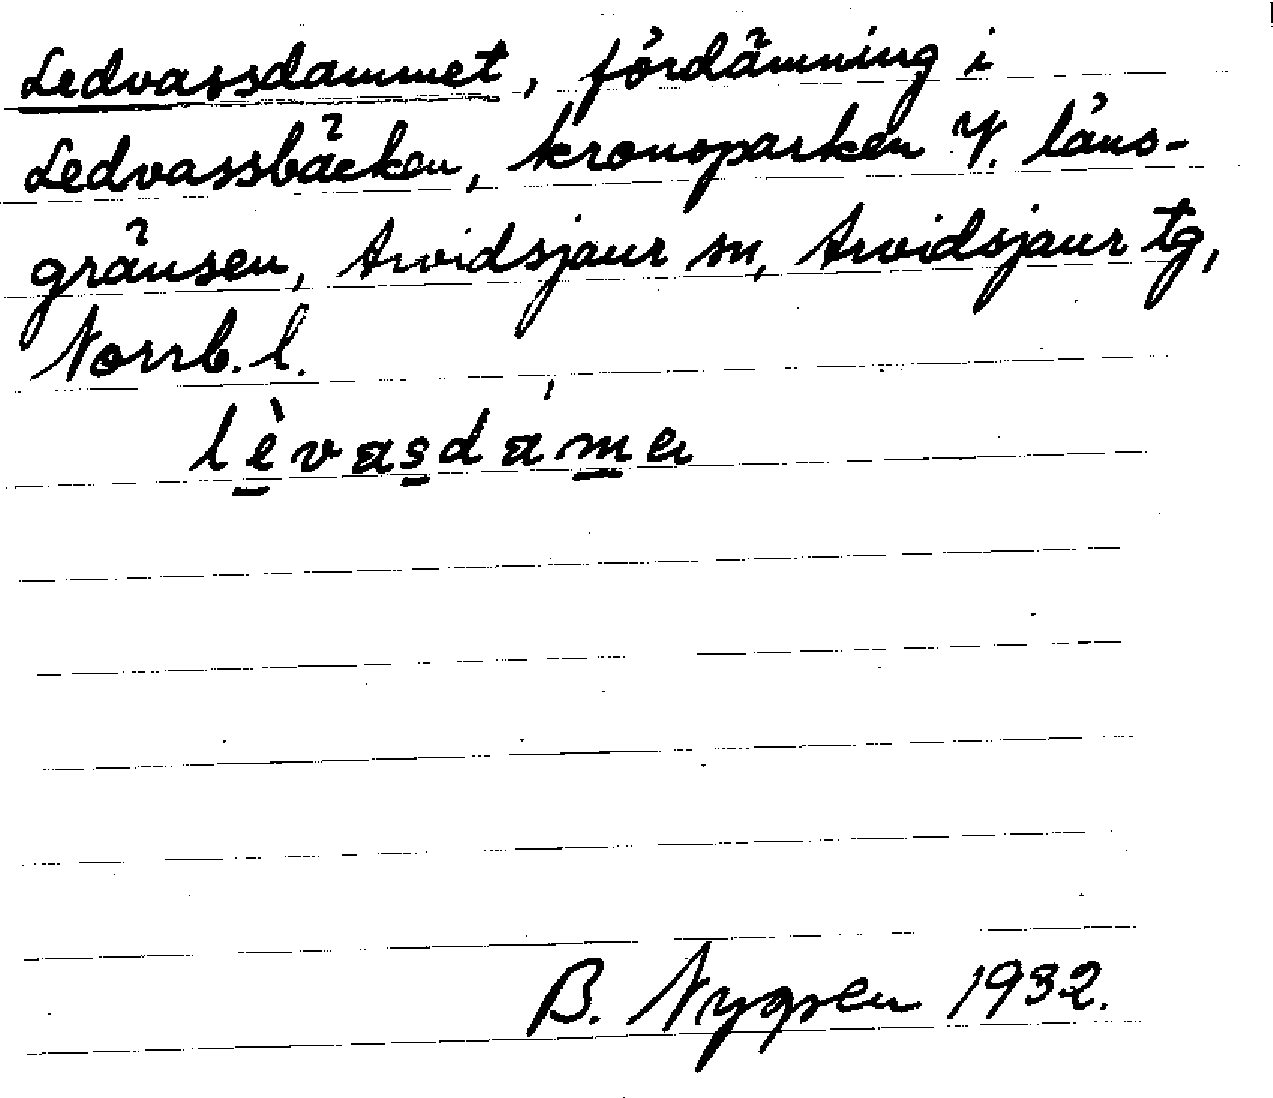 Ledvassdammet, fördämning i
Ledvassbäcken, kronoparken V. läns-
gränsen, Arvidsjaur sn, Arvidsjaur tg,
Norrb. l.
lèvasdáma
B. Nygren 1932.